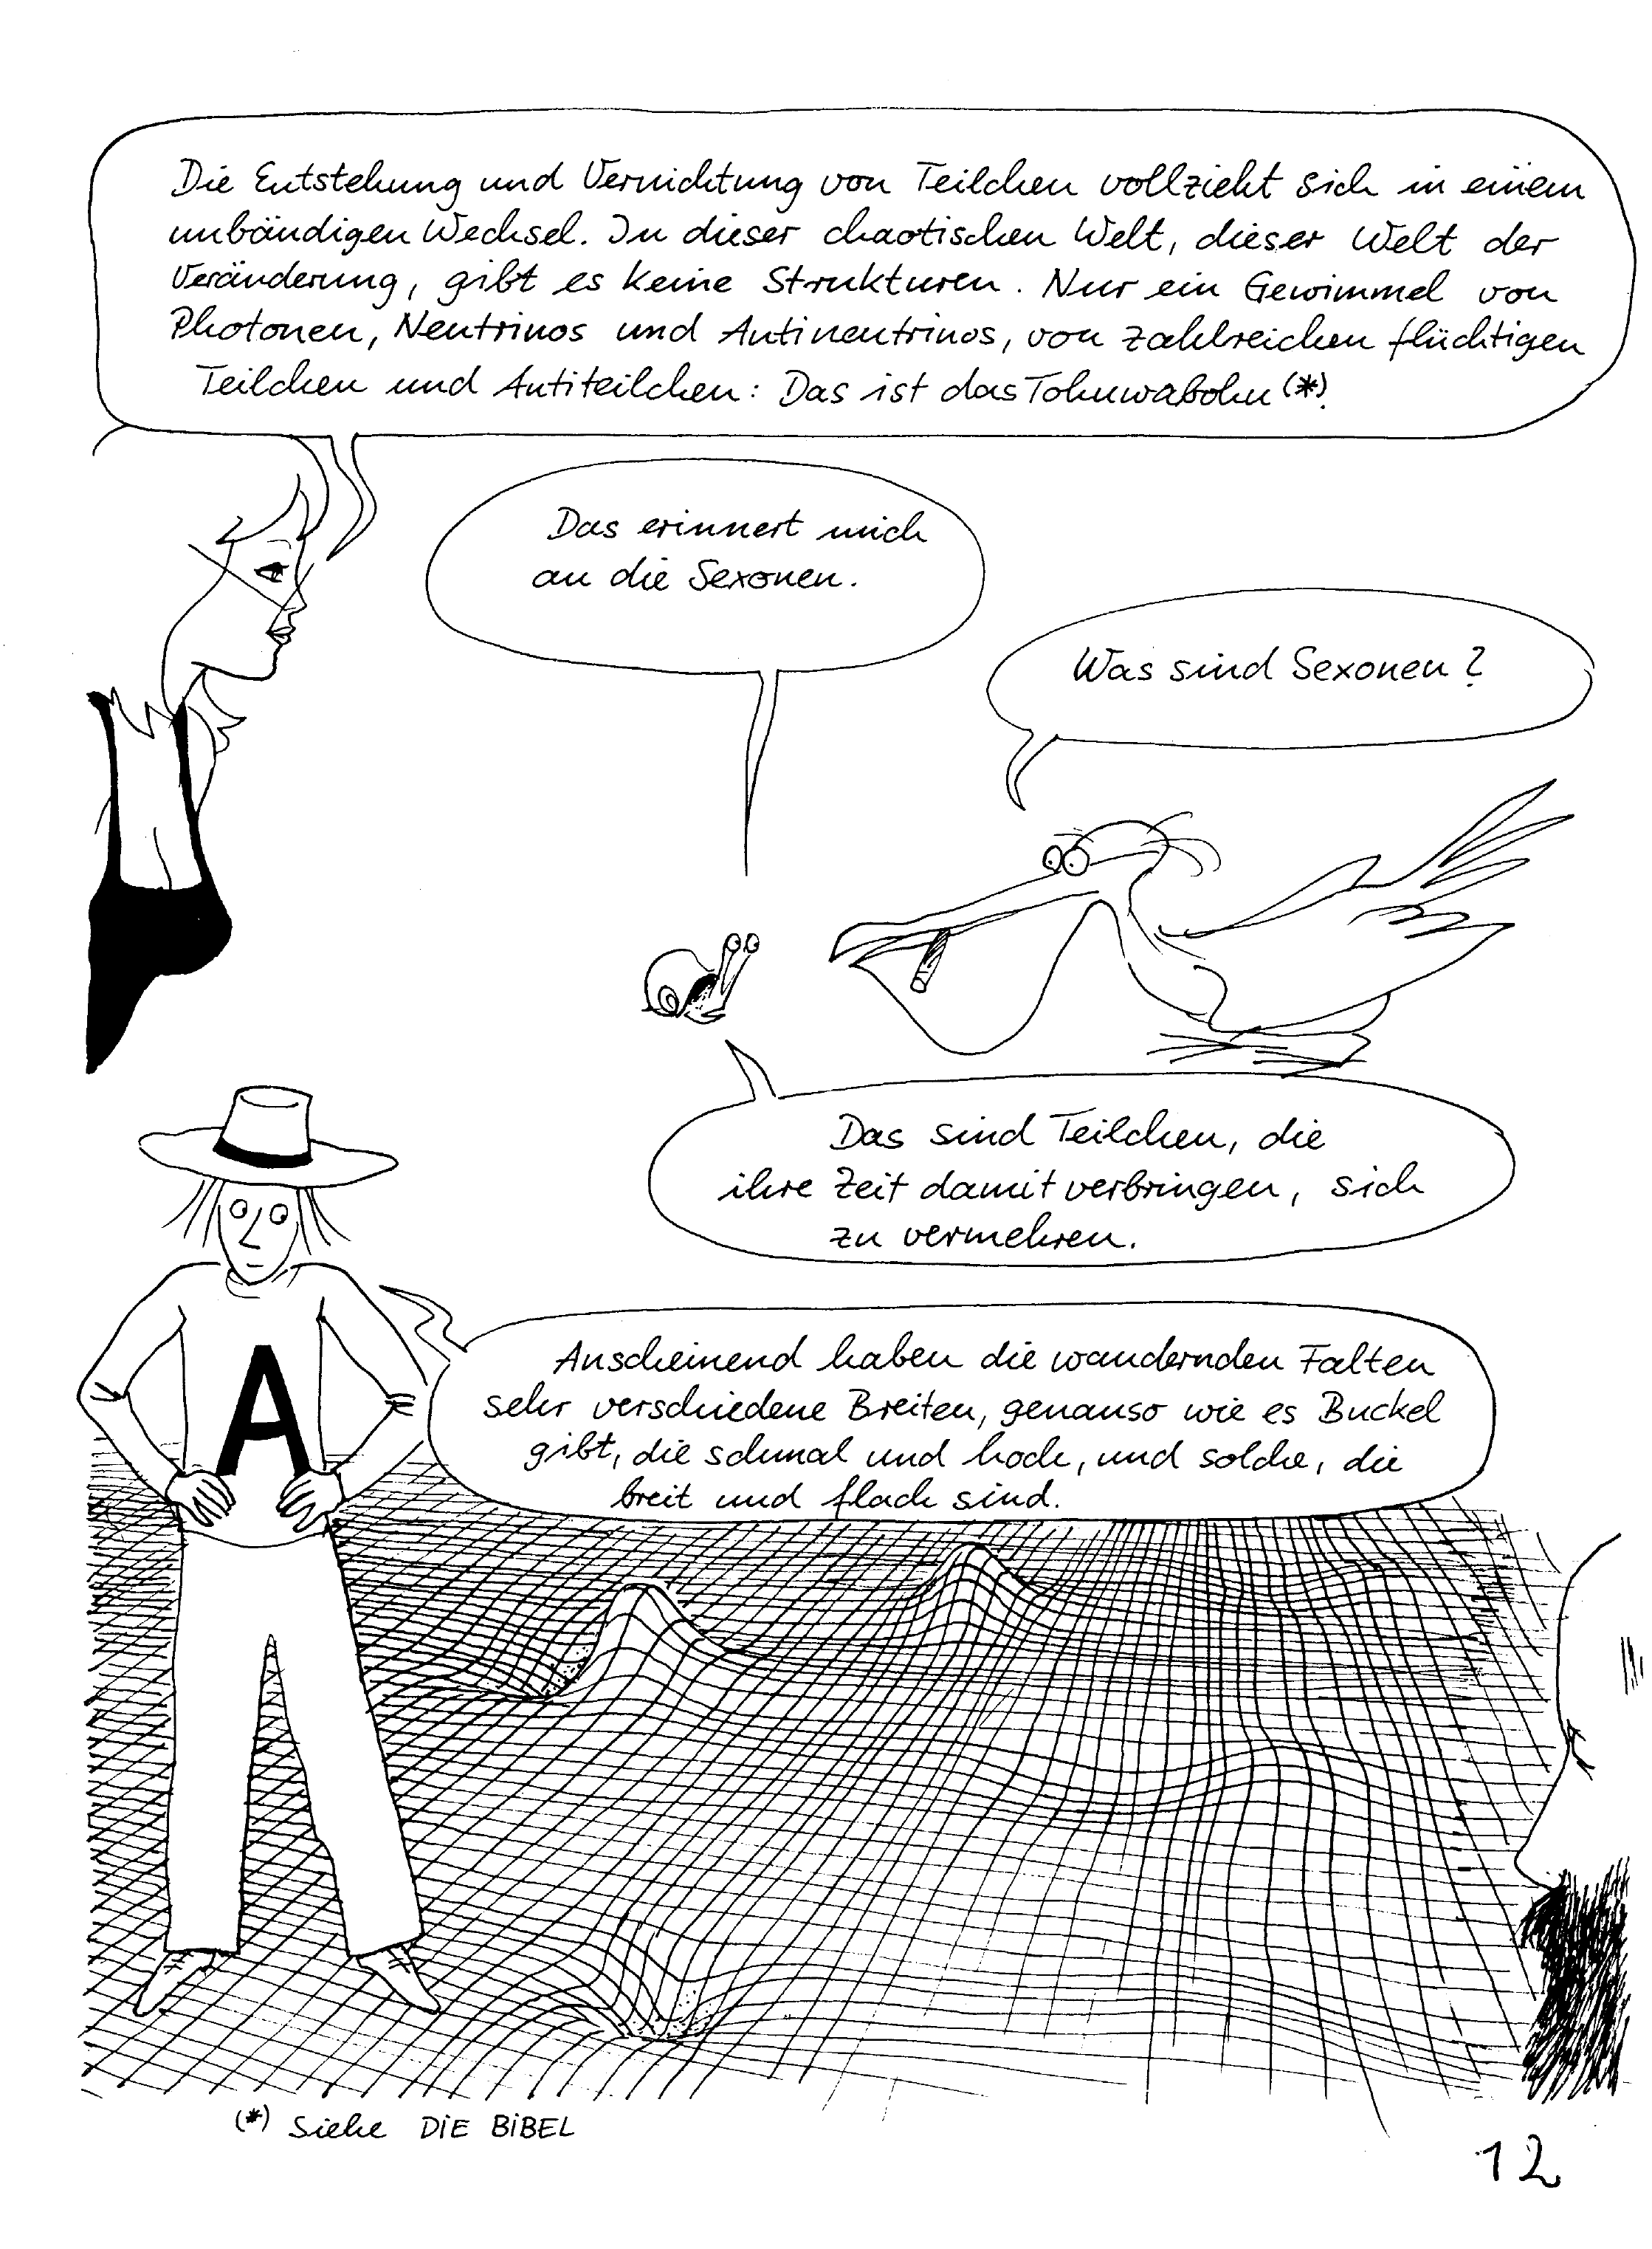 Die Entstehung und Vernichtung von Teilchen vollzieht sich in einem
unbändigen Wechsel. In dieser chaotischen Welt, dieser Welt der
Veränderung, gibt es keine Strukturen. Nur ein Gewimmel von
Photonen, Neutrinos und Antineutrinos, von zahlreichen flüchtigen
Teilchen und Antiteilchen: Das ist das Tohuwabohu (*).
Das erinnert mich
an die Sexonen.
Was sind Sexonen?
Das sind Teilchen, die
ihre Zeit damit verbringen, sich
zu vermehren.
A
Anscheinend haben die wandernden Falten
sehr verschiedene Breiten, genauso wie es Buckel
gibt, die schmal und hoch, und solche, die
breit und flach sind.
(*) Siehe DIE BIBEL
12